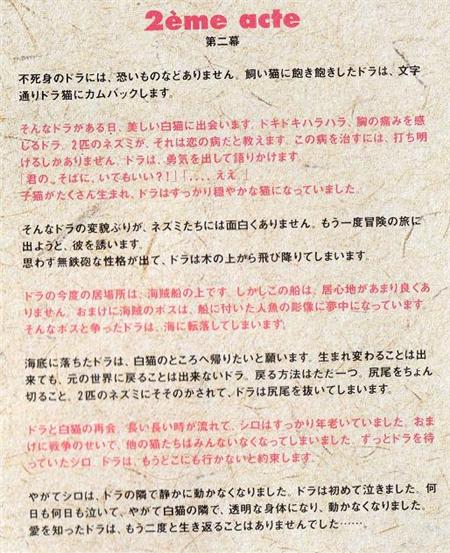 2ème acte
第二幕
不死身のドラには、恐いものなどありません。飼い猫に飽き飽きしたドラは、文字
通りドラ猫にカムバックします。
そんなドラがある日、美しい白猫に出会います。ドキドキハラハラ、胸の痛みを感
じるドラ。2匹のネズミが、それは恋の病だと教えます。この病を治すには、打ち明
けるしかありません。ドラは、勇気を出して語りかけます。
「君の。そばに、いてもいい?!」「....ええ。」
子猫がたくさん生まれ、ドラはすっかり穏やかな猫になっていました。
そんなドラの変貌ぶりが、ネズミたちには面白くありません。もう一度冒険の旅に
出ようと、彼を誘います。
思わず無鉄砲な性格が出て、ドラは木の上から飛び降りてしまいます。
ドラの今度の居場所は、海賊船の上です。しかしこの船は、居心地があまり良くあ
りません。おまけに海賊のボスは、船に付いた人魚の影像に夢中になっています。
そんなボスと争ったドラは、海に転落してしまいます。
海底に落ちたドラは、白猫のところへ帰りたいと願います。生まれ変わることは出
来ても、元の世界に戻ることは出来ないドラ。戻る方法はただ一つ。尻尾をちょん
切ること。2匹のネズミにそそのかされて、ドラは尻尾を抜いてしまいます。
ドラと白猫の再会。長い長い時が流れて、シロはすっかり年老いていました。おま
けに戦争のせいで、他の猫たちはみんないなくなってしまいました。ずっとドラを待
っていたシロ。ドラは、もうどこにも行かないと約束します。
やがてシロは、ドラの隣で静かに動かなくなりました。ドラは初めて泣きました。何
日も何日も泣いて、やがて白猫の隣で、透明な身体になり、動かなくなりました。
愛を知ったドラは、もう二度と生き返ることはありませんでした……。